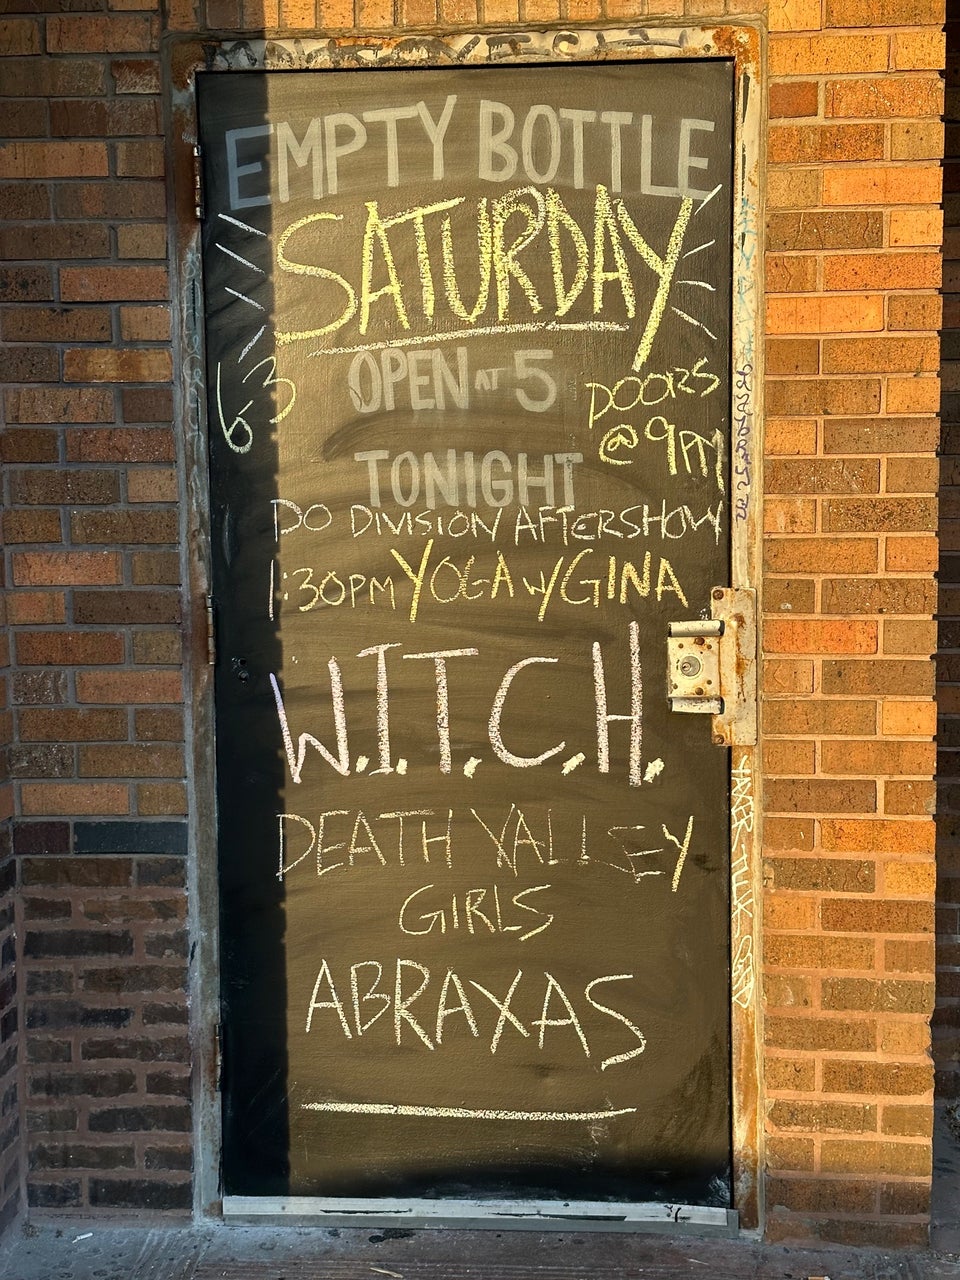 EMPTY BOTTLE
SATURDAY
6-3
OPEN AT 5
DOORS
@ 9PM
TONIGHT
DO DIVISION AFTERSHOW
1:30PM YOGA W/ GINA
W.I.T.C.H.
DEATH VALLEY
GIRLS
ABRAXAS